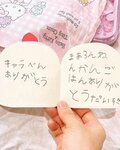 キャラべん
ありがとう
まあるんね
んかんご
はんありが
とうだいすき